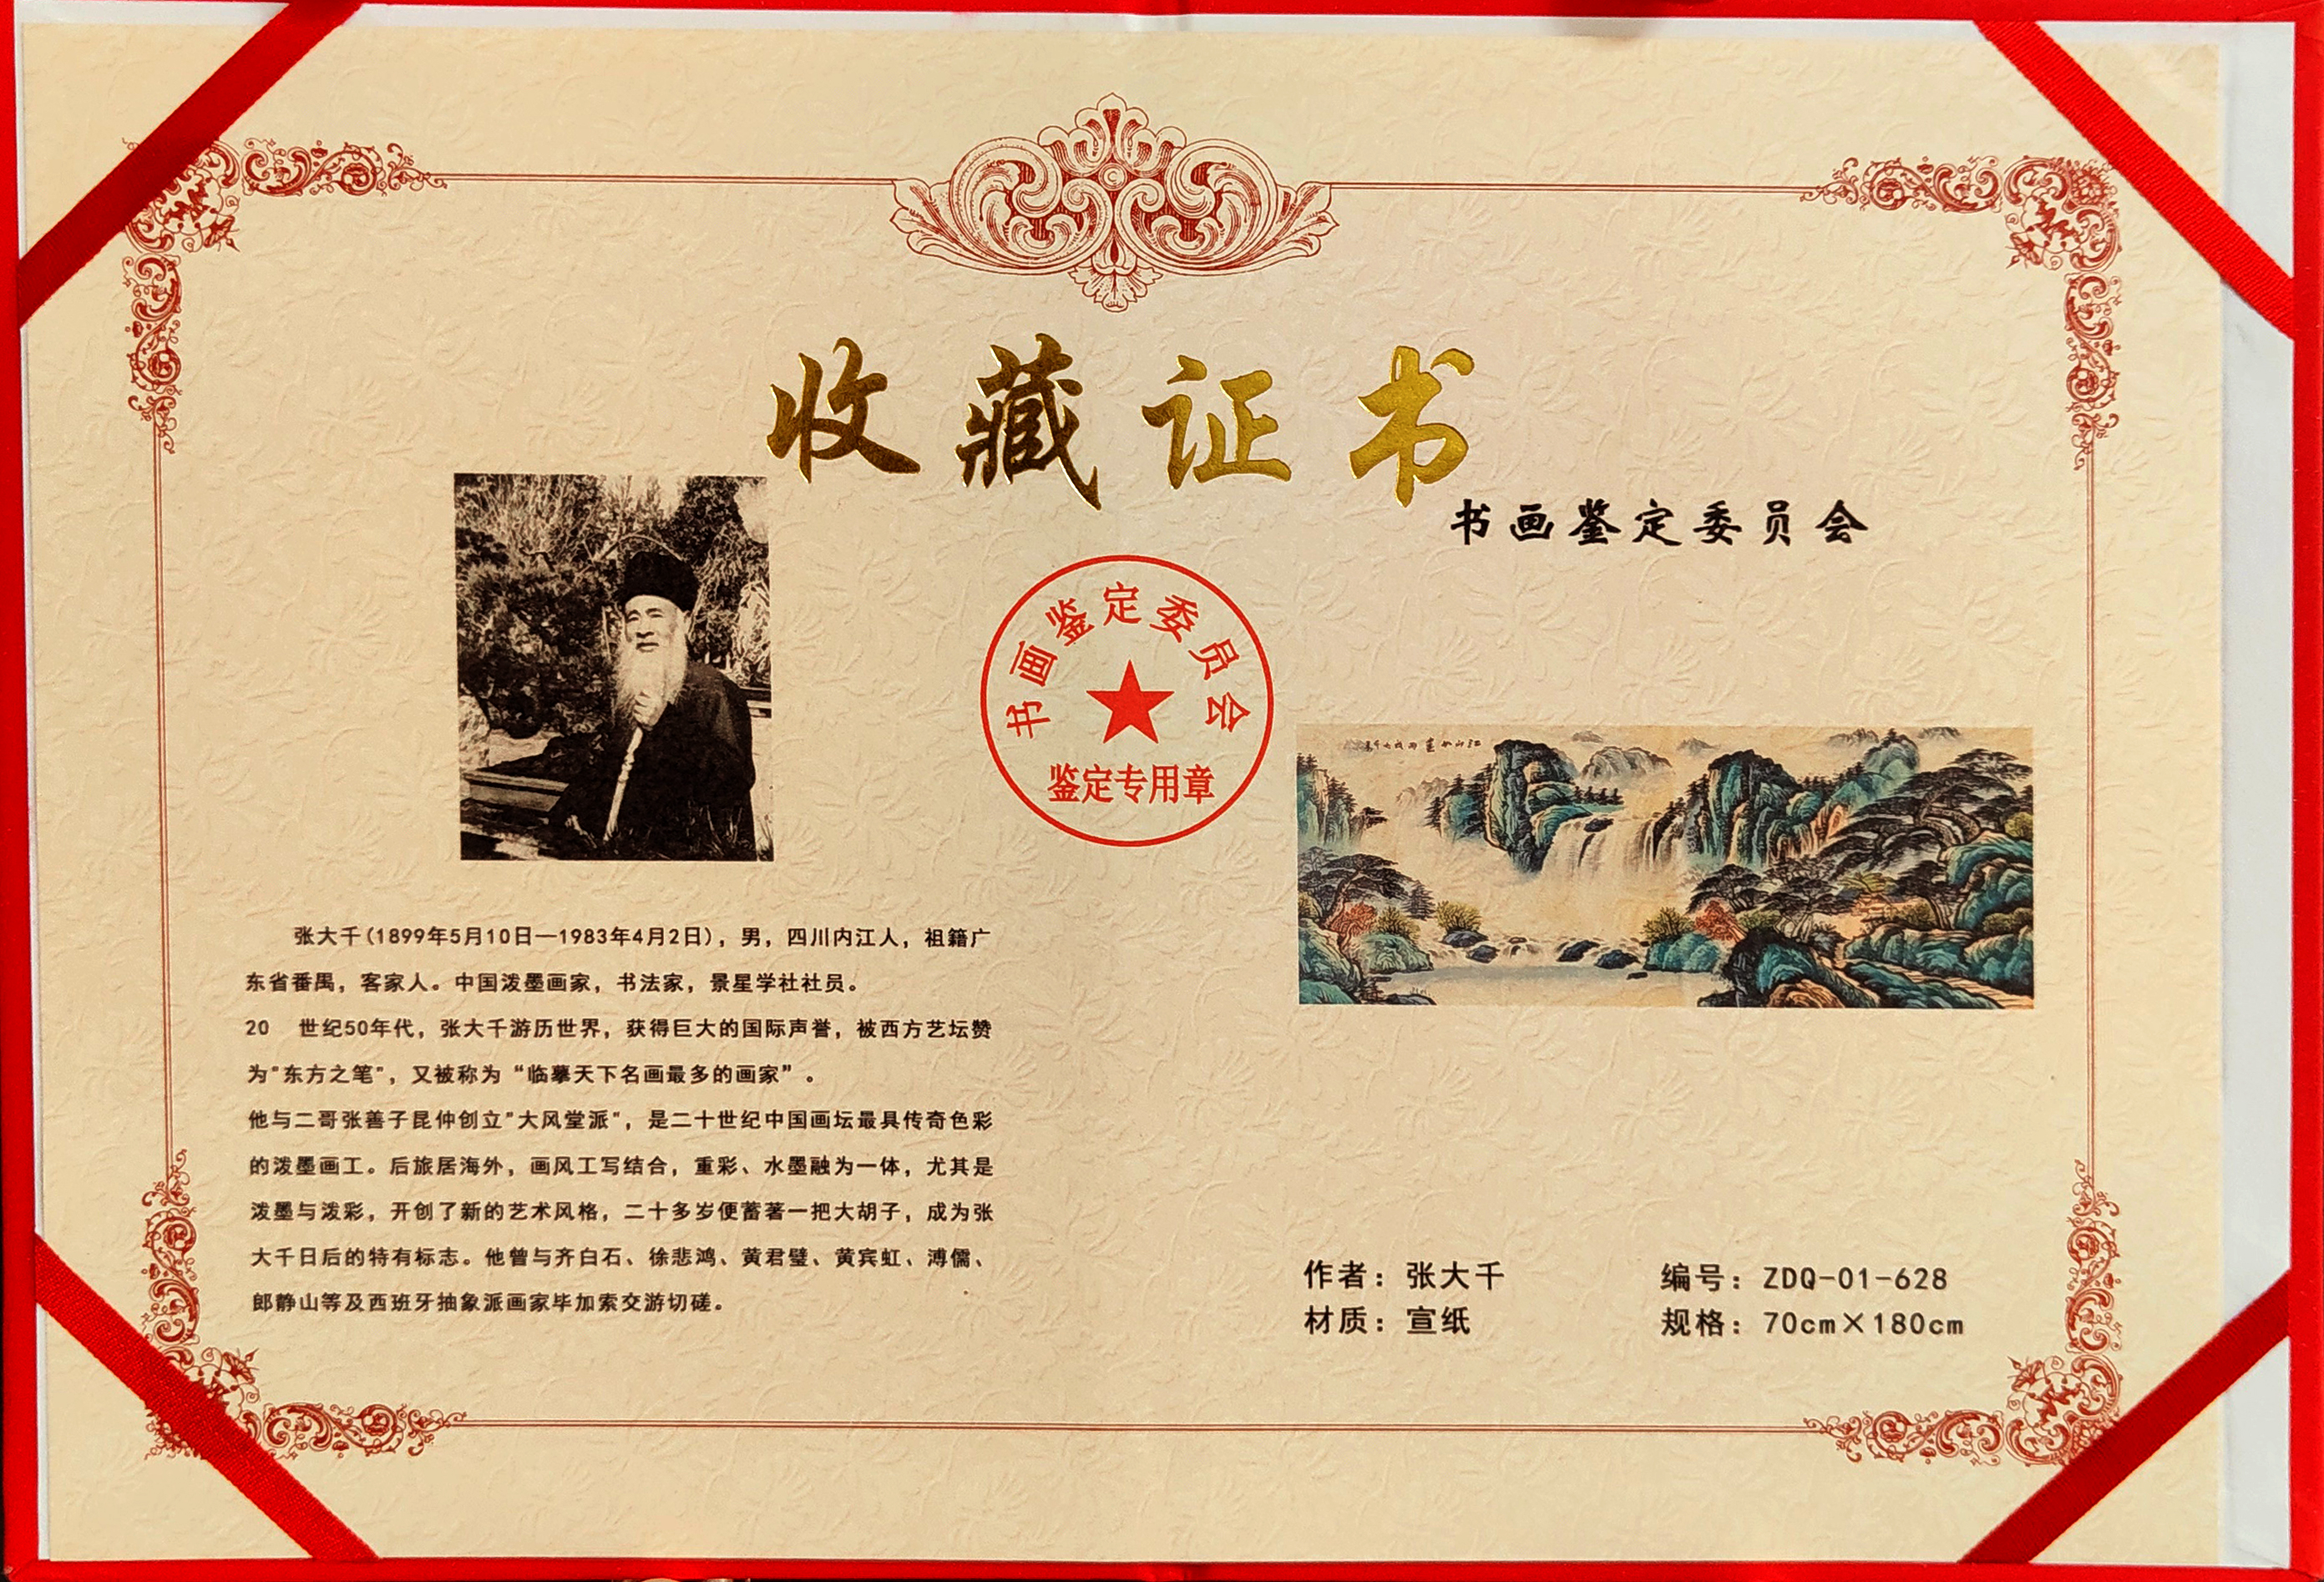 收藏证书
书画鉴定委员会
书画鉴定委员会
鉴定专用章
张大千(1899年5月10日—1983年4月2日)，男，四川内江人，祖籍广
东省番禺，客家人。中国泼墨画家，书法家，景星学社社员。
20 世纪50年代，张大千游历世界，获得巨大的国际声誉，被西方艺坛赞
为"东方之笔"，又被称为“临摹天下名画最多的画家”。
他与二哥张善子昆仲创立"大风堂派"，是二十世纪中国画坛最具传奇色彩
的泼墨画工。后旅居海外，画风工写结合，重彩、水墨融为一体，尤其是
泼墨与泼彩，开创了新的艺术风格，二十多岁便蓄著一把大胡子，成为张
大千日后的特有标志。他曾与齐白石、徐悲鸿、黄君璧、黄宾虹、溥儒、
郎静山等及西班牙抽象派画家毕加索交游切磋。
作者：张大千
编号：ZDQ-01-628
材质：宣纸
规格：70cm×180cm